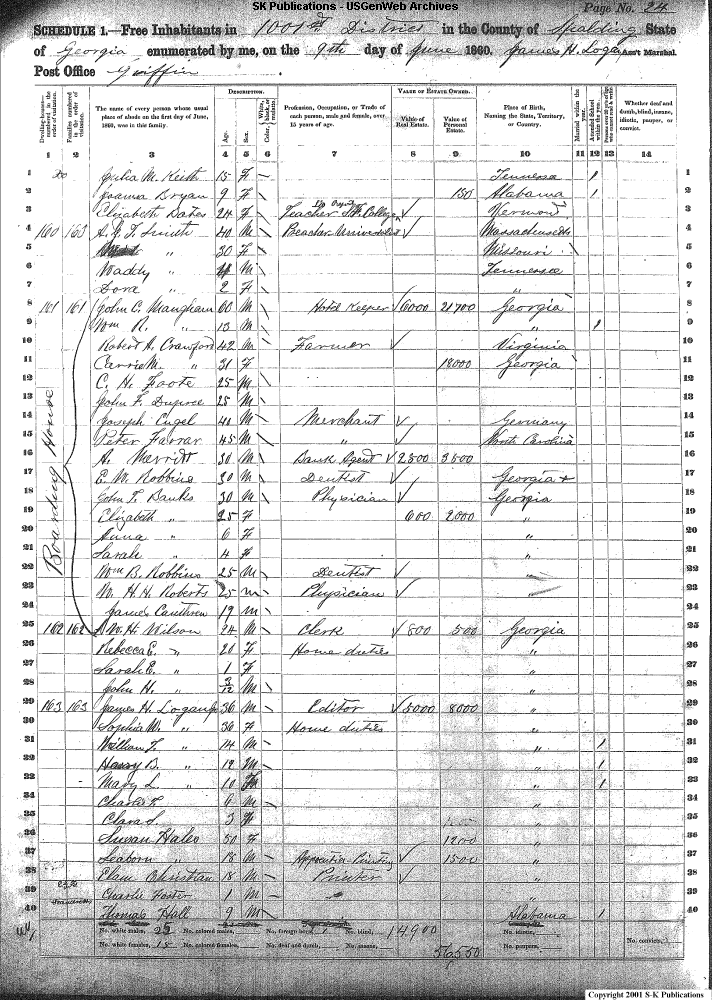 SK Publications - USGenWeb Archives
Page No. 24
SCHEDULE 1.—Free Inhabitants in 1001st District in the County of Spalding State
of Georgia enumerated by me, on the 9th day of June 1860. James H. Logan Ass't Marshal.
Post Office Griffin
Dwelling-houses numbered in the order of visitation.
Families numbered in the order of visitation.
The name of every person whose usual place of abode on the first day of June, 1860, was in this family.
DESCRIPTION.
Age.
Sex.
Color, White, black, or mulatto.
Profession, Occupation, or Trade of each person, male and female, over 15 years of age.
VALUE OF ESTATE OWNED.
Value of Real Estate.
Value of Personal Estate.
Place of Birth, Naming the State, Territory, or Country.
Married within the year.
Attended School within the year.
Whether deaf and dumb, blind, insane, idiotic, pauper, or convict.
1 2 3 4 5 6 7 8 9 10 11 12 13 14
1 Julia M. Keith 15 F Tennessee 1 1
2 Joanna Bryan 9 F 150 Alabama 1 2
3 Elizabeth Bates 24 F Teacher College Vermont 3
4 160 163 A. Smith 40 M Universalist Massachusetts 4
5 " 30 F Missouri 5
6 Waddy " M Tennessee 6
7 Dora " 2 F " 7
8 161 161 John C. Mangham 60 M Hotel Keeper 6000 21700 Georgia 8
9 Wm R. " 13 M " 1 9
10 Robert H. Crawford 42 M Farmer Virginia 10
11 Carrie M. " 31 F 18000 Georgia 11
12 C. H. Foote 25 M 12
13 John F. Dupree 25 M 13
14 Joseph Engel 40 M Merchant Germany 14
15 Peter Farrar 45 M " North Carolina 15
16 A. Merritt 30 M Bank Agent 2500 3500 16
17 E. W. Robbins 30 M Dentist Georgia 17
18 John T. Banks 30 M Physician Georgia 18
19 Elizabeth " 25 F 600 2000 " 19
20 Anna " 6 F " 20
21 Sarah " 4 F " 21
22 Wm B. Robbins 25 M Dentist " 22
23 W. H. H. Roberts 25 M Physician " 23
24 James Cauthren 19 M 24
Boarding House
25 162 162 Wm. H. Wilson 24 M Clerk 800 500 Georgia 25
26 Rebecca E. " 20 F Home duties " 26
27 Sarah E. " 1 F " 27
28 John H. " 3/12 M " 28
29 163 163 James H. Logan 36 M Editor 5000 8000 " 29
30 Sophia W. " 36 F Home duties " 30
31 William T. " 14 M " 1 31
32 Henry B. " 12 M " 1 32
33 Mary L. " 10 F " 1 33
34 Charles F. 6 M " 34
35 Clara S. 3 F " 35
36 Susan Hales 50 F 1200 " 36
37 Seaborn " 18 M Apprentice Printing 1500 " 37
38 Elam Christian 18 M Printer " 38
39 Charlie Foster 1 M " 39
40 Thomas Hall 9 M Alabama 1 40
No. white males, 25 No. colored males, No. foreign born, 1 No. blind, 14900 No. idiotic,
No. white females, 15 No. colored females, No. deaf and dumb, No. insane, 56550 No. paupers, No. convicts,
Copyright 2001 S-K Publications